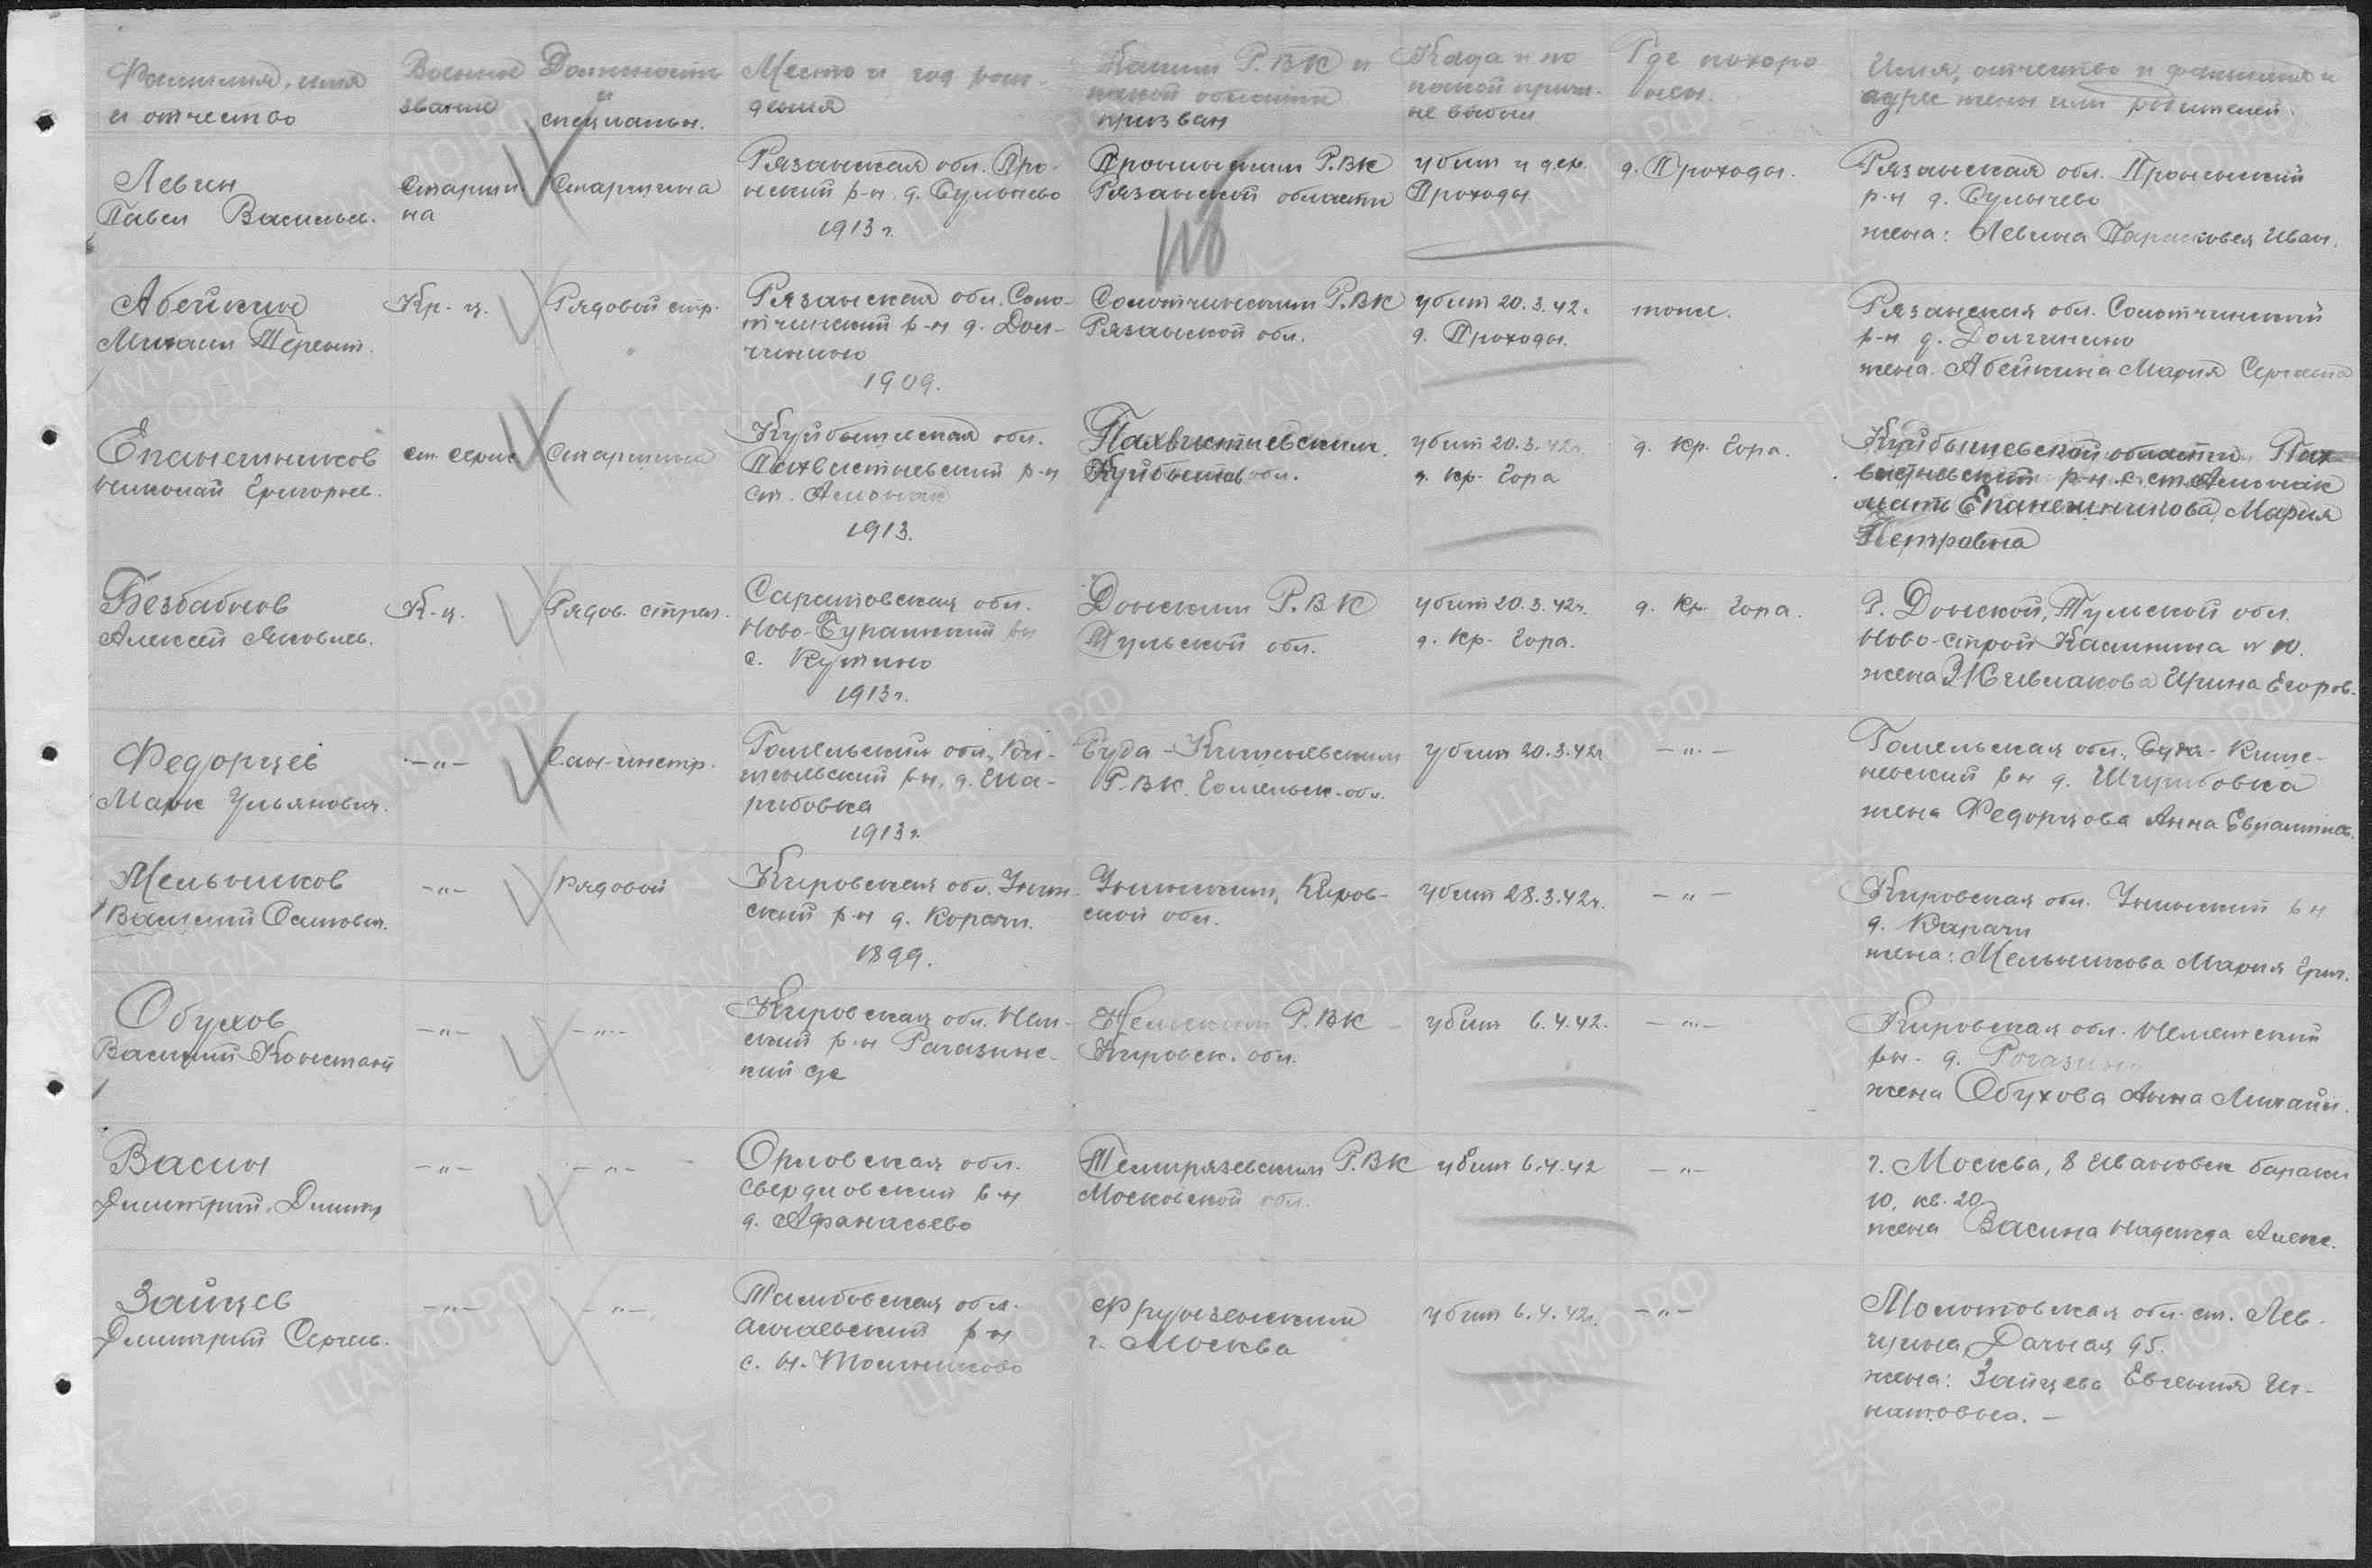 Фамилия, имя
и отчество
Военное
звание
Должность
и
специальн.
Место и год рож-
дения
Каким Р.ВК и
какой области
призван
Когда и по
какой причи-
не выбыл
Где похоро
нен.
Имя, отчество и фамилия и
адрес жены или родителей.
Левин
Павел Васильев.
Старши-
на
Старшина
Рязанская обл. Про-
нский р-н. д. Сулычево
1913 г.
Пронским Р.ВК
Рязанской области
убит у дер.
Проходы
д. Проходы.
Рязанская обл. Пронский
р-н д. Сулычево
жена: Левина Парасковея Иван.
Абейкин
Михаил Терент.
Кр-ц.
Рядовой стр.
Рязанская обл. Соло-
тчинский р-н д. Дол-
гинино
1909.
Солотчинским Р.ВК
Рязанской обл.
убит 20.3.42.
д. Проходы.
тоже.
Рязанская обл. Солотчинский
р-н д. Долгинино
жена. Абейкина Мария Сергеевна
Епанешников
Николай Григорьев.
ст. серж.
Старшина
Куйбышевская обл.
Похвистневский р-н
ст. Аманак
1913.
Похвистневским
Куйбышев обл.
убит 20.3.42г.
д. Кр. Гора
д. Кр. Гора.
Куйбышевской области Пох-
вистневский р-н с. ст. Аманак
мать Епанешникова Мария
Петровна
Безбабнов
Алексей Яковлев.
К-ц.
Рядов. стрел.
Саратовская обл.
Ново-Бурасский рн
с. Кутино
1913 г.
Донским Р.ВК
Тульской обл.
убит 20.3.42г.
д. Кр. Гора.
д. Кр. Гора.
г. Донской, Тульской обл.
Ново-строй Калинина № 10.
жена Ирина Егоров.
Федорцев
Марк Ульянович.
-"-
Сан-инстр.
Гомельский обл.,
1913 г.
Буда-Кошелевским
Р.ВК. Гомельск. обл.
убит 20.3.42г
-"-
Гомельская обл., Буда-Коше-
левский рн д.
жена Федорцова Анна
Мельников
Василий Осипович.
-"-
Рядовой
Кировская обл. Унин-
ский р-н д. Корачи.
1899.
Унинским, Киров-
ской обл.
убит 28.3.42г.
-"-
Кировская обл. Унинский рн
д. Карачи
жена: Мельникова Мария Григ.
Обухов
Василий Констант
-"-
-"-
Кировская обл. Нем-
ский р-н Рагазинс-
кий с/с
Немским Р.ВК
Кировск. обл.
убит 6.4.42.
-"-
Кировская обл. Неметский
рн. д. Рогазин
жена Обухова Анна Михайл.
Васин
Димитрий Димитр
-"-
-"-
Орловская обл.
Свердловский рн
д. Афанасьево
Темирязевским Р.ВК
Московской обл.
убит 6.4.42
-"-
г. Москва, 8 Ивановск бараки
10, кв. 20
жена Васина Надежда Алекс.
Зайцев
Димитрий Сергев.
-"-
-"-
Тамбовская обл.
р-н
с. Н-Томниково
Фрунзенский
г. Москва
убит 6.4.42г.
-"-
Молотовская обл. ст. Лев-
щина, Дачная 95.
жена: Зайцева Евгения Иг-
натовна. -